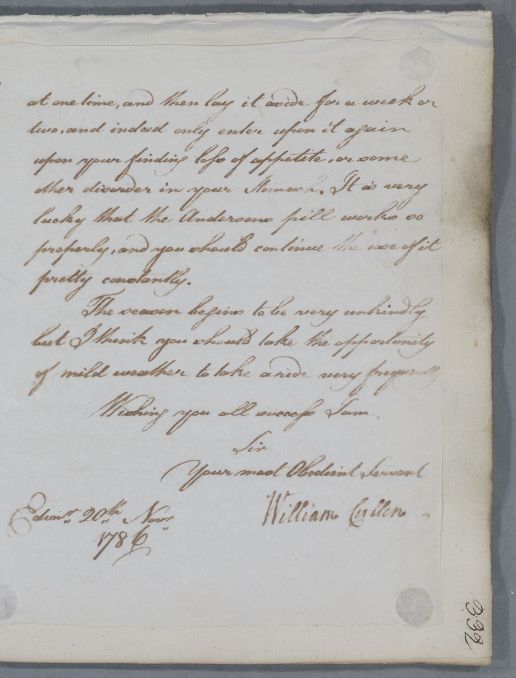 at one time, and then lay it aside for a week or
two, and indeed only enter upon it again
upon your finding loss of appetite, or some
other disorder in your Stomach. It is very
lucky that the Andersons pill works so
properly, and you should continue the use of it
pretty constantly.
The season begins to be very unkindly
but I think you should take the opportunity
of mild weather to take a ride very frequently
Wishing you all success I am
Sir
Your most Obedient Servant
William Cullen
Edinr. 20th. Novr.
1786
332